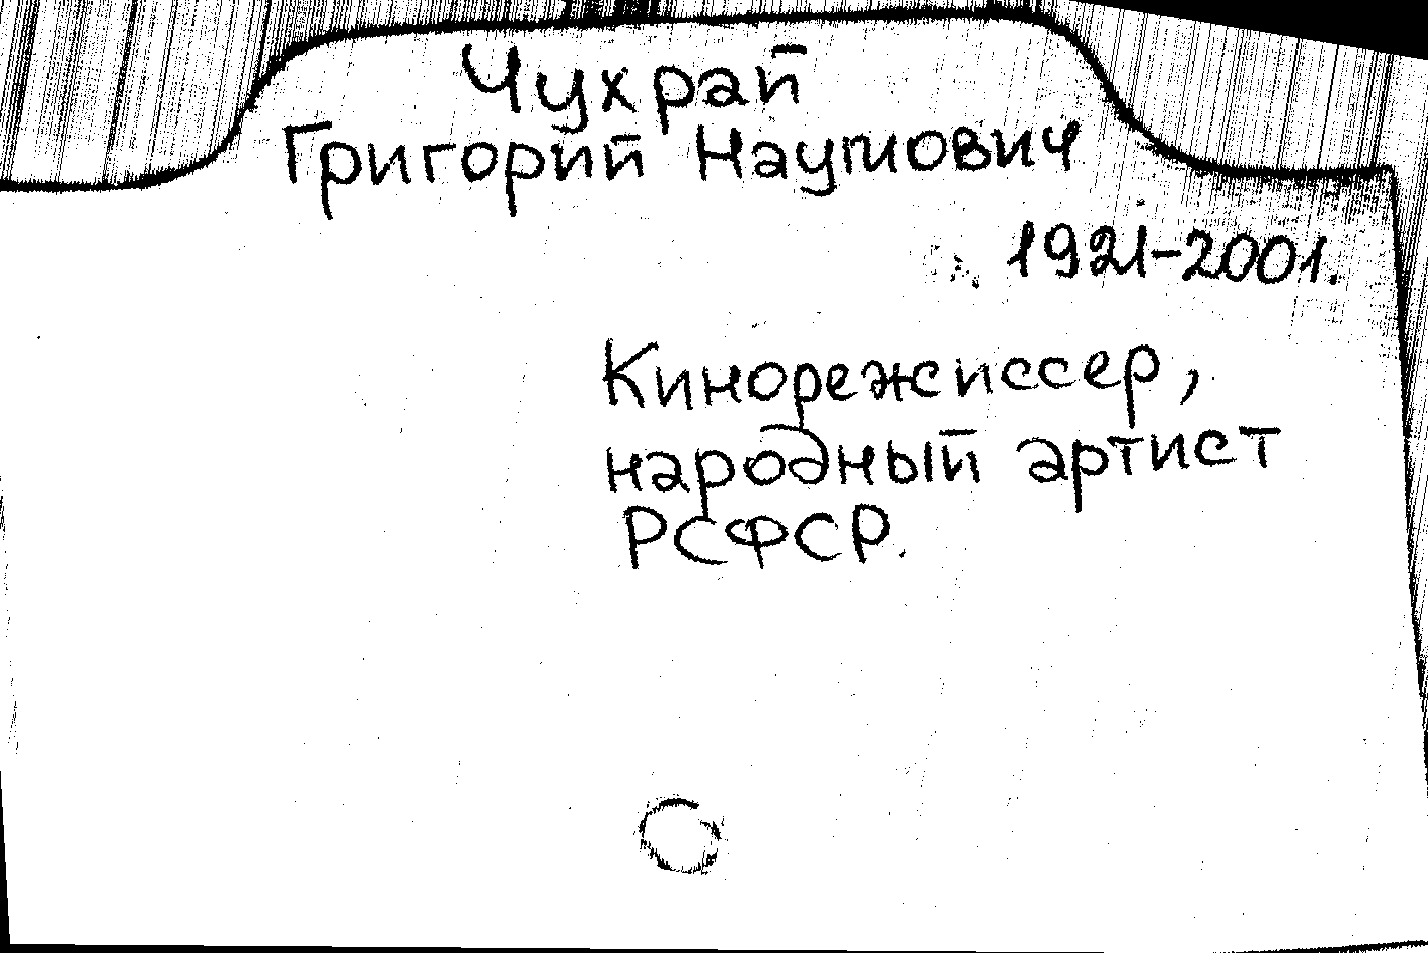 Чухрай
Григорий Наумович
1921-2001.
Кинорежиссер,
народный артист
РСФСР.